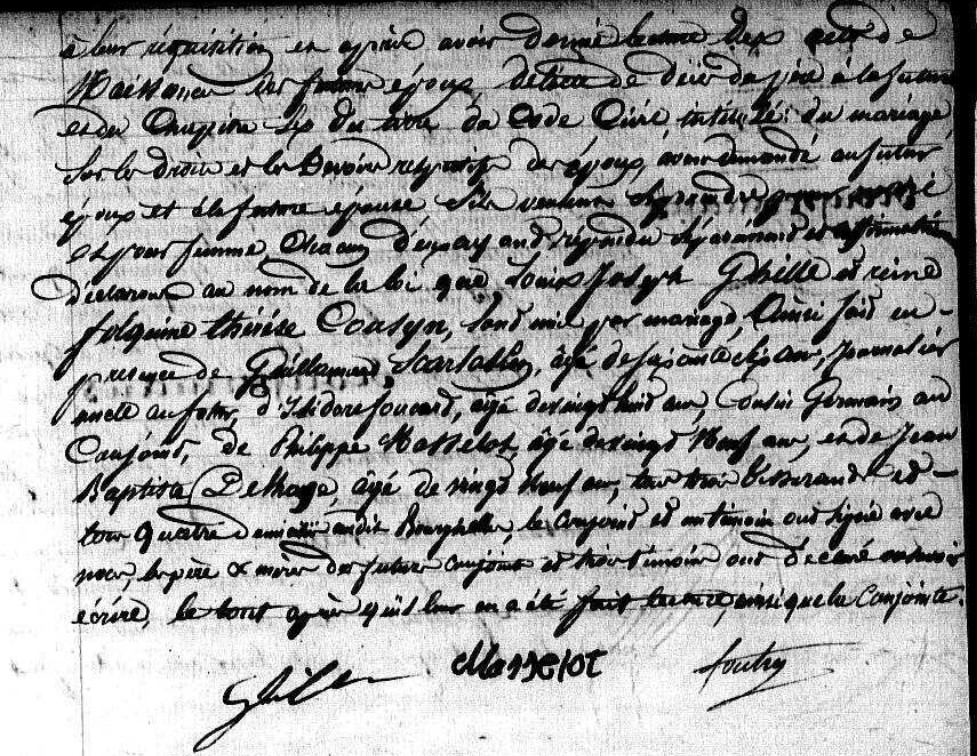 à leur réquisition et après avoir donné lecture des actes de
Naissance des futurs époux, de l'acte de décès du père à la future
et du Chapitre six du titre du Code Civil intitulé: du mariage
sur les droits et les Devoirs respectifs des époux, avons demandé au futur
époux et à la future épouse s'ils veulent se prendre pour mari
et pour femme, chacun d'eux ayant répondu séparément et affirmativement
déclarons au nom de la loi que, Louis Joseph Ghille et reine
folquine thérèse Cousyn, sont unis par mariage, Ainsi fait en -
présence de Guillaume Scarlakin, âgé de soixante six ans, Journalier
oncle au futur, d'Isidore foucard, âgé de vingt huit ans, Cousin Germain au
Conjoint, de Philippe Masselot, âgé de vingt Neuf ans, et de Jean
Baptiste Delhaye, âgé de vingt Neuf ans, tous trois tisserands et -
tous quatre domiciliés audit, le conjoint et un témoin ont signé avec
nous, les père & mères des futurs conjoints et trois témoins ont déclaré ne savoir
écrire, le tout après qu'il leur en a été fait lecture, ainsi que la Conjointe.
Ghille Masselot foutry